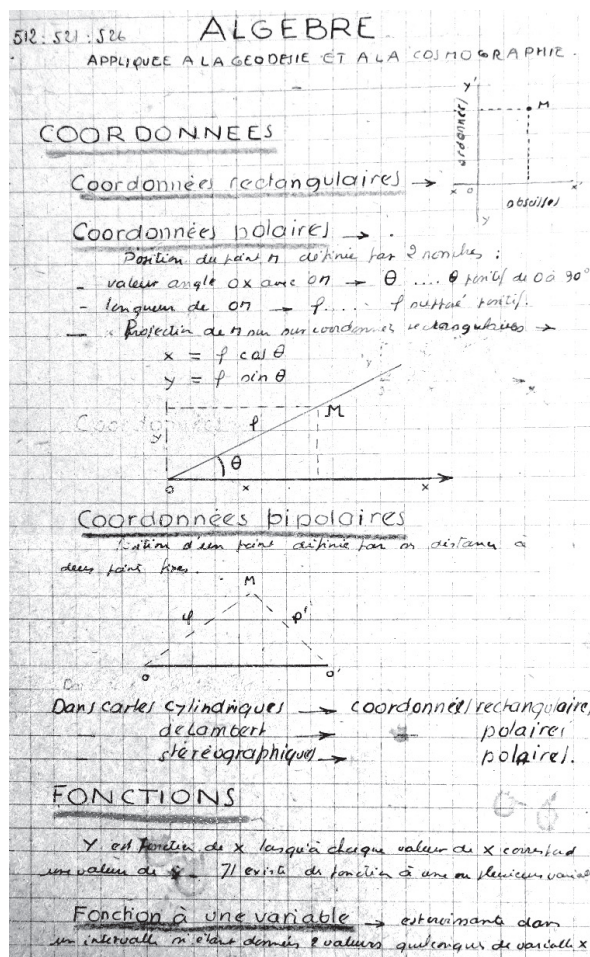 512 : 521 : 526
ALGEBRE
APPLIQUEE A LA GEODESIE ET A LA COSMOGRAPHIE.
Y'
ordonnées
M
x O x'
abscisses
Y
COORDONNEES
Coordonnées rectangulaires →
Coordonnées polaires → .
Position du point M définie par 2 nombres :
- valeur angle OX avec OM → θ .... θ positif de 0 à 90°
- longueur de OM → ρ ..... ρ positif.
- Projection de M sur coordonnées rectangulaires →
x = ρ cos θ
y = ρ sin θ
Coordonnées
M
ρ
y
θ
O x x
Coordonnées bipolaires
Position d'un point définie par distances à
deux points fixes.
M
ρ ρ'
O O'
Dans cartes cylindriques → coordonnées rectangulaires
— de Lambert → — polaires
— stéréographiques → polaires.
FONCTIONS
Y est fonction de X lorsqu'à chaque valeur de X correspond
une valeur de Y. Il existe des fonctions à une ou plusieurs variables
Fonction à une variable → est croissante dans
un intervalle si étant données 2 valeurs quelconques de variable x